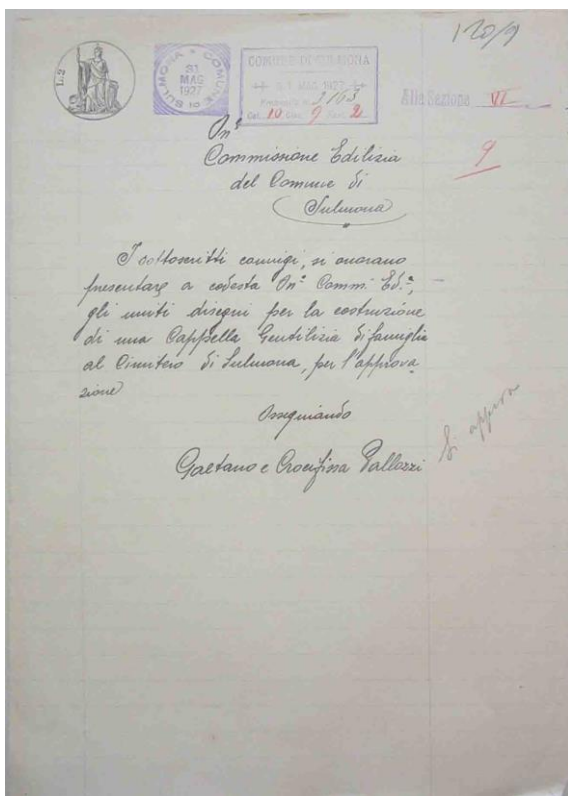 120/9
L.2
COMUNE DI SULMONA
31
MAG
1927
COMUNE DI SULMONA
31 MAG 1927
Protocollo N. 3163
Cat. 10 Clas. 9 Fasc. 2
Alla Sezione VI
9
On.e
Commissione Edilizia
del Comune di
Sulmona
I sottoscritti coniugi, si onorano
presentare a codesta On.e Comm. Ed.a,
gli uniti disegni per la costruzione
di una Cappella Gentilizia di famiglia
al Cimitero di Sulmona, per l'approva
zione
Ossequiando
Si approva
Gaetano e Crocifissa Pallozzi